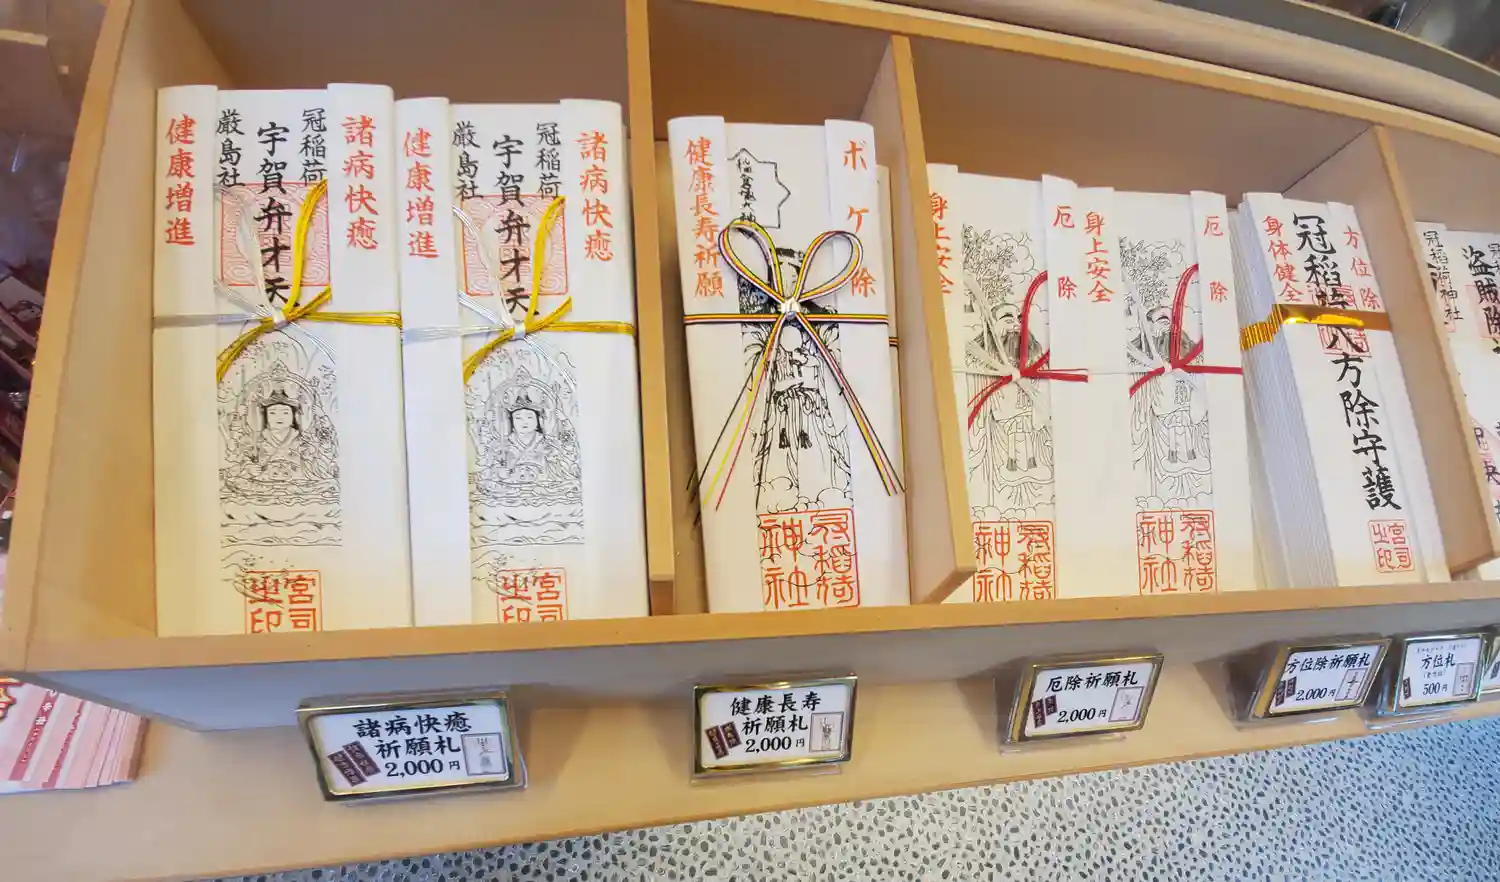 諸病快癒
冠稲荷
宇賀弁才天
厳島社
健康増進
宮司
之印
諸病快癒
冠稲荷
宇賀弁才天
厳島社
健康増進
宮司
之印
ボケ除
健康長寿祈願
冠稲荷
神社
厄除
身上安全
冠稲荷
神社
厄除
身上安全
冠稲荷
神社
方位除
身体健全
冠稲荷八方除守護
宮司
之印
冠稲荷神社
盗賊除
諸病快癒
祈願札
2,000円
健康長寿
祈願札
2,000円
厄除祈願札
2,000円
方位除祈願札
2,000円
方位札
500円